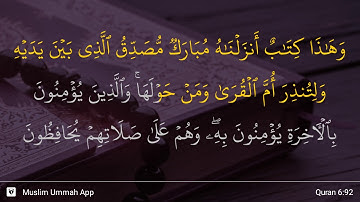 وَهَـٰذَا كِتَـٰبٌ أَنزَلْنَـٰهُ مُبَارَكٌ مُّصَدِّقُ ٱلَّذِى بَيْنَ يَدَيْهِ
وَلِتُنذِرَ أُمَّ ٱلْقُرَىٰ وَمَنْ حَوْلَهَا ۚ وَٱلَّذِينَ يُؤْمِنُونَ
بِٱلْـَٔاخِرَةِ يُؤْمِنُونَ بِهِۦ ۖ وَهُمْ عَلَىٰ صَلَاتِهِمْ يُحَافِظُونَ
Muslim Ummah App
Quran 6:92